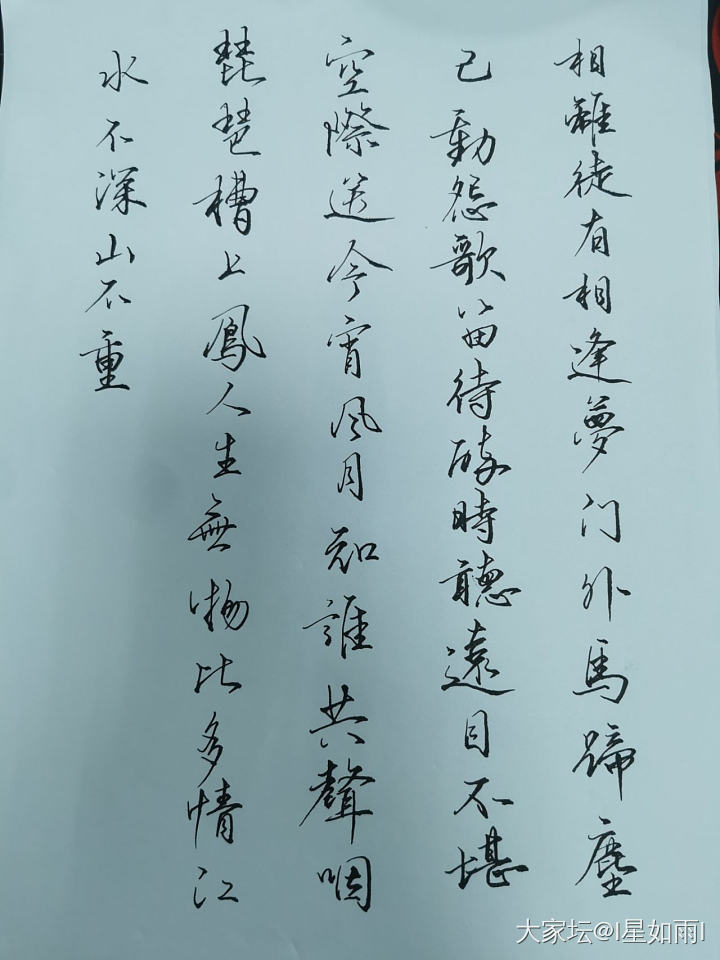 相離徒有相逢夢门外馬蹄塵
已動怨歌笛待醉時聽遠目不堪
空際送今宵风月知誰共聲咽
琵琶槽上鳳人生無物比多情江
水不深山不重
大家坛@l星如雨l